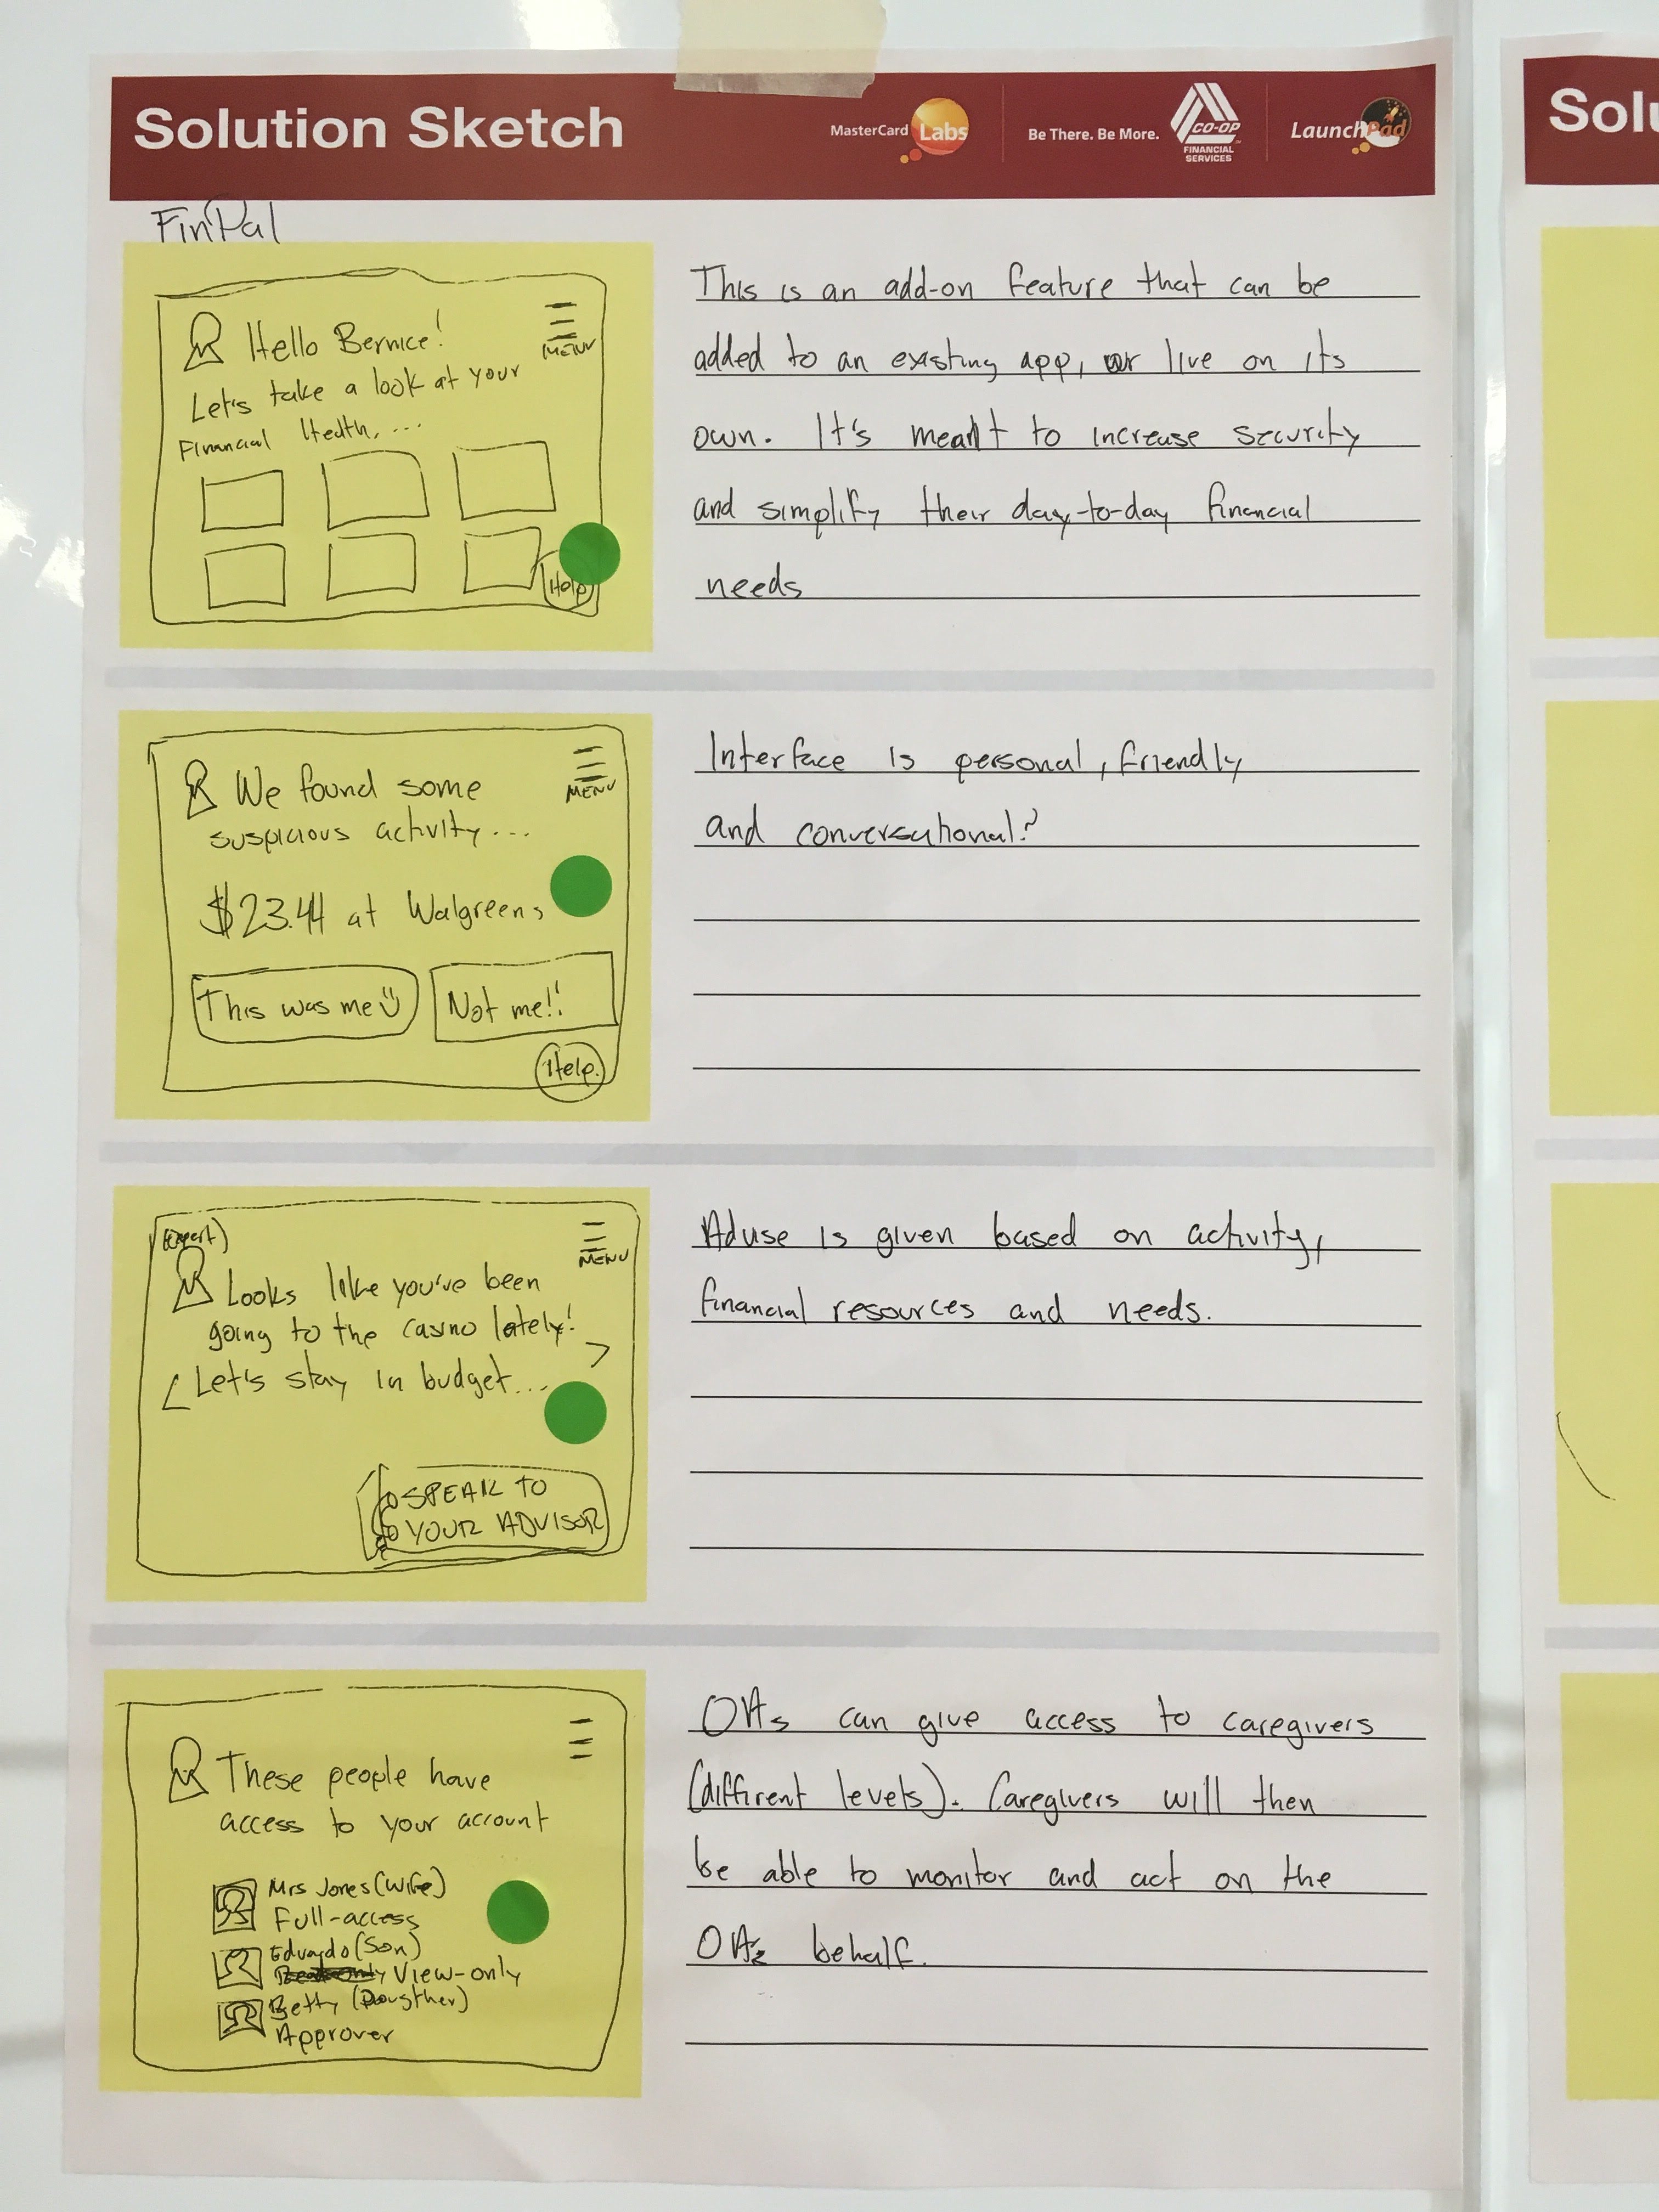 Solution Sketch
MasterCard Labs
Be There. Be More.
CO-OP
FINANCIAL
SERVICES
LaunchPad
Solu
FinPal
Hello Bernice!
MENU
Let's take a look at your
Financial Health, ...
Help
This is an add-on feature that can be
added to an existing app, or live on its
own. It's meant to increase security
and simplify their day-to-day financial
needs
We found some
MENU
suspicious activity...
$23.44 at Walgreens
This was me
Not me!!
Help
Interface is personal, friendly
and conversational?
(Expert)
MENU
Looks like you've been
going to the casino lately!
Let's stay in budget...
SPEAK TO
YOUR ADVISOR
Aduse is given based on activity,
financial resources and needs.
These people have
access to your account
Mrs Jones (Wife)
Full-access
Eduardo (Son)
View-only
Betty (Dougther)
Approver
OAs can give access to caregivers
(different levels). Caregivers will then
be able to monitor and act on the
OAs behalf.